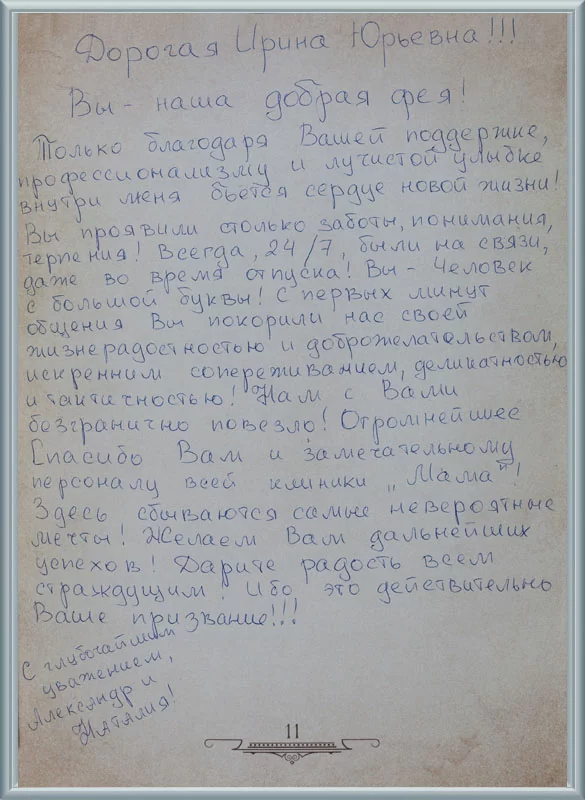 Дорогая Ирина Юрьевна!!!
Вы - наша добрая фея!
Только благодаря Вашей поддержке,
профессионализму и лучистой улыбке
внутри меня бьётся сердце новой жизни!
Вы проявили столько заботы, понимания,
терпения! Всегда, 24/7, были на связи,
даже во время отпуска! Вы - Человек
с большой буквы! С первых минут
общения Вы покорили нас своей
жизнерадостностью и доброжелательством,
искренним сопереживанием, деликатностью
и тактичностью! Нам с Вами
безгранично повезло! Огромнейшее
Спасибо Вам и замечательному
персоналу всей клиники „Мама"!
Здесь сбываются самые невероятные
мечты! Желаем Вам дальнейших
успехов! Дарите радость всем
страждущим! Ибо это действительно
Ваше призвание!!!
С глубочайшим
уважением,
Александр и
Наталия!
11